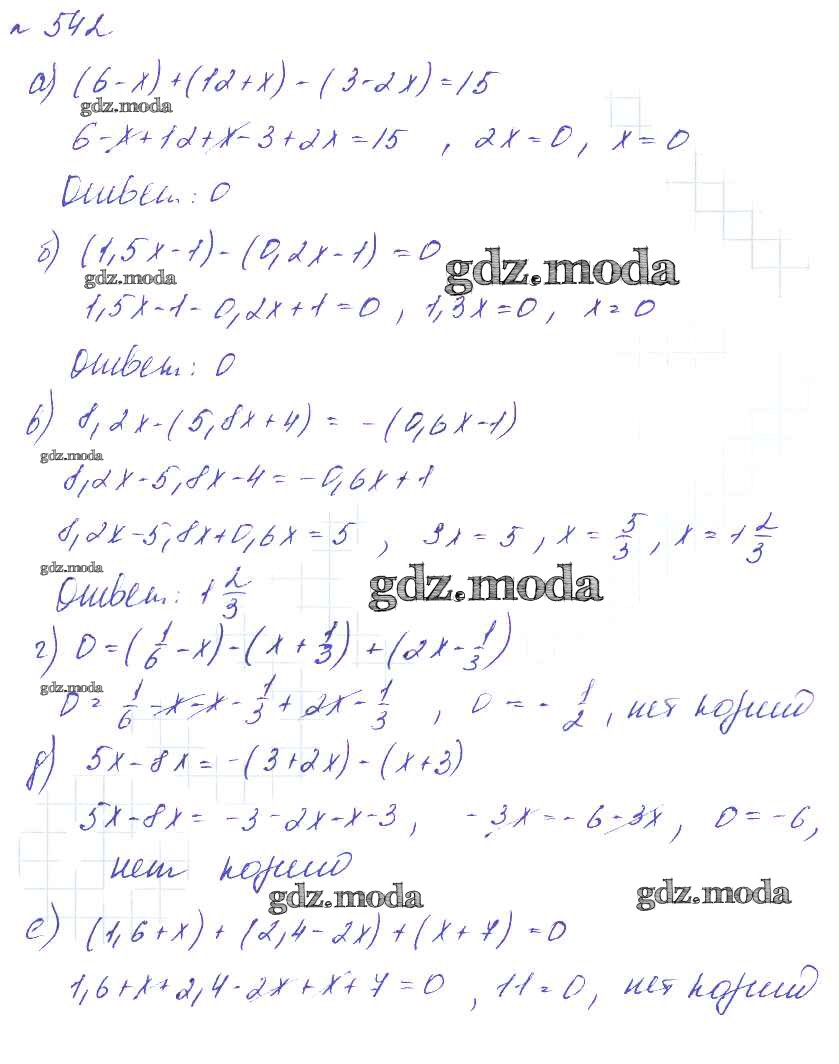 n 542
а) (6-x)+(12+x)-(3-2x)=15
gdz.moda
6-x+12+x-3+2x=15 , 2x=0, x=0
Ответ: 0
б) (1,5x-1)-(0,2x-1)=0
gdz.moda
gdz.moda
1,5x-1-0,2x+1=0, 1,3x=0, x=0
Ответ: 0
в) 8,2x-(5,8x+4) = -(0,6x-1)
gdz.moda
8,2x-5,8x-4=-0,6x+1
8,2x-5,8x+0,6x=5 , 3x=5, x=5/3, x=1 2/3
gdz.moda
gdz.moda
Ответ: 1 2/3
г) 0=(1/6-x)-(x+1/3)+(2x-1/3)
gdz.moda
0=1/6-x-x-1/3+2x-1/3 , 0=-1/2, нет корней
д) 5x-8x=-(3+2x)-(x+3)
5x-8x=-3-2x-x-3, -3x=-6-3x, 0=-6,
нет корней
gdz.moda
gdz.moda
е) (1,6+x)+(2,4-2x)+(x+7)=0
1,6+x+2,4-2x+x+7=0 , 11=0, нет корней